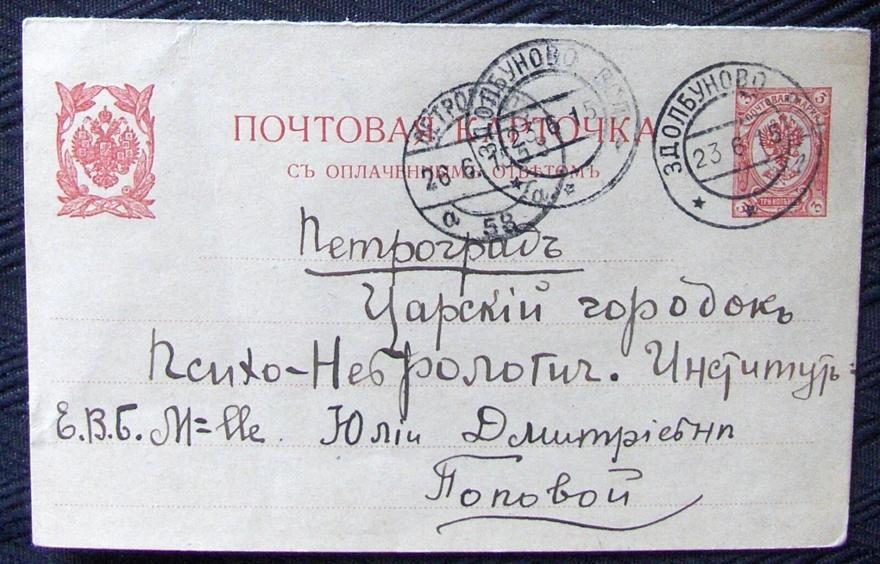 ПОЧТОВАЯ КАРТОЧКА
СЪ ОПЛАЧЕННЫМЪ ОТВѢТОМЪ
ЗДОЛБУНОВО
23 6 15
ЗДОЛБУНОВО ВОЛ
23 6 15
а
ПЕТРОГРАДЪ
26 6 15
а 58
ПОЧТОВАЯ МАРКА
3 3
ТРИ КОП
3 3
Петроградъ
Царскій городокъ
Психо-Неврологич. Институтъ
Е.В.Б. M=lle. Юліи Дмитріевнѣ
Поповой